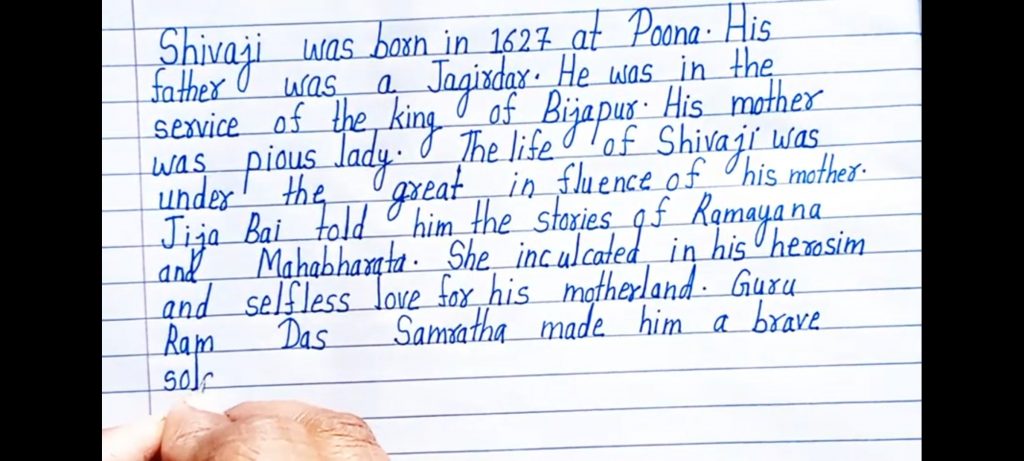 Shivaji was born in 1627 at Poona. His
father was a Jagirdar. He was in the
service of the king of Bijapur. His mother
was pious lady. The life of Shivaji was
under the great in fluence of his mother.
Jija Bai told him the stories of Ramayana
and Mahabharata. She inculcated in his herosim
and selfless love for his motherland. Guru
Ram Das Samratha made him a brave